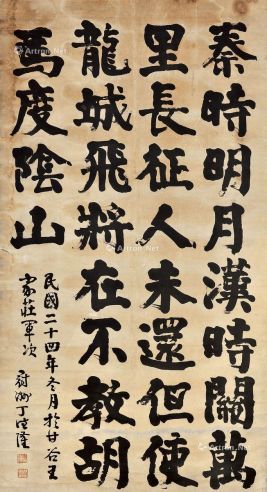 秦時明月漢時關萬
里長征人未還但使
龍城飛將在不教胡
馬度陰山
民國二十四年冬月於甘谷王
家莊軍次 洲丁德隆
Artron.Net